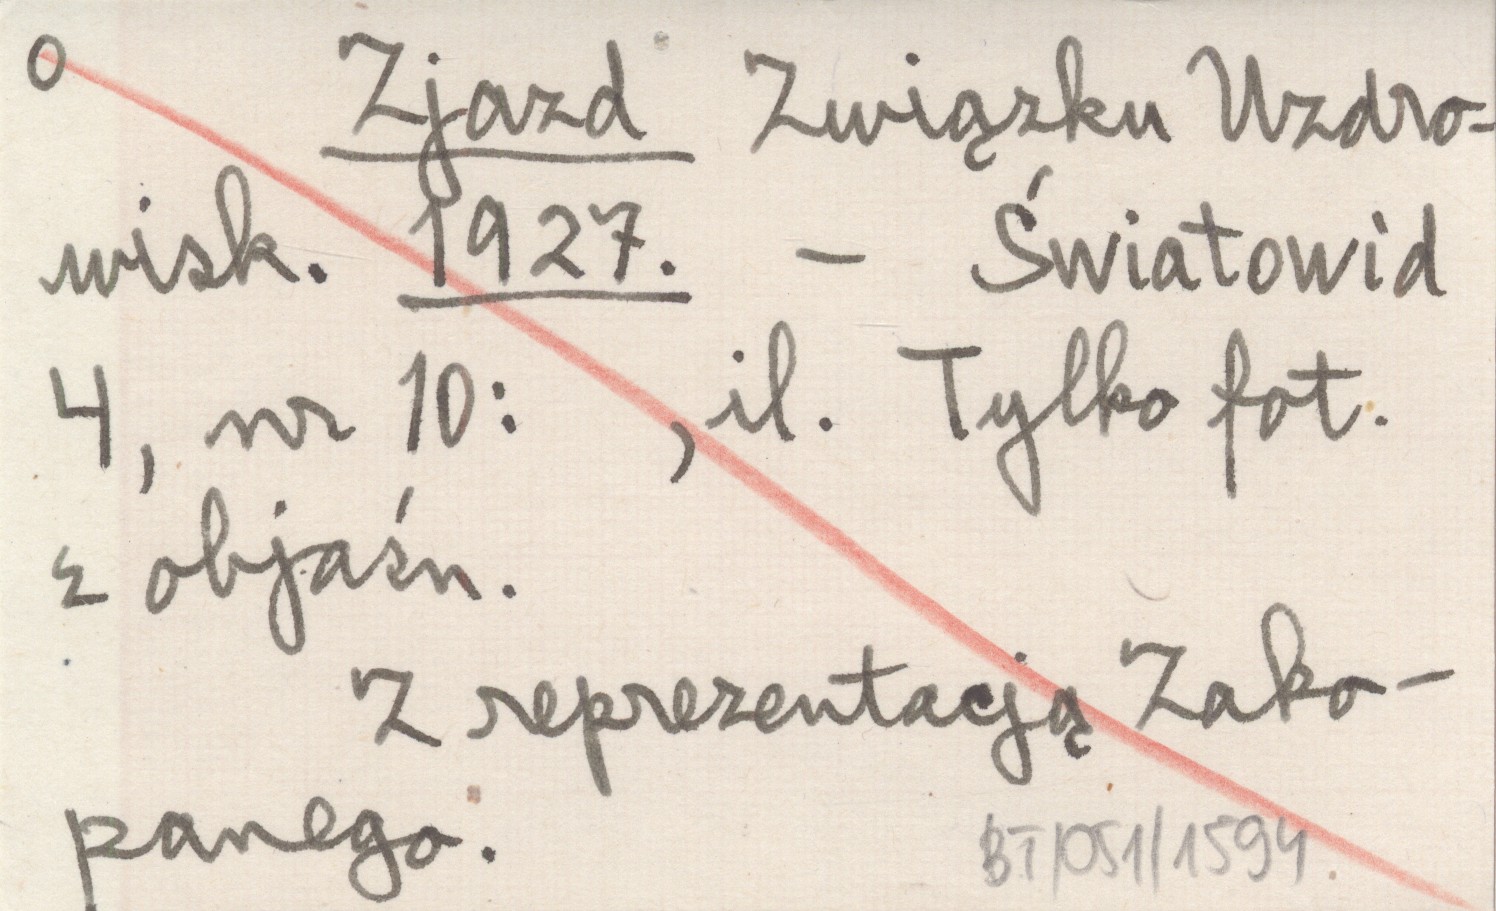 o Zjazd Związku Uzdro=
wisk. 1927. – Światowid
4, nr 10:    , il. Tylko fot.
z objaśn.
Z reprezentacją Zako-
panego.
BT/051/1594